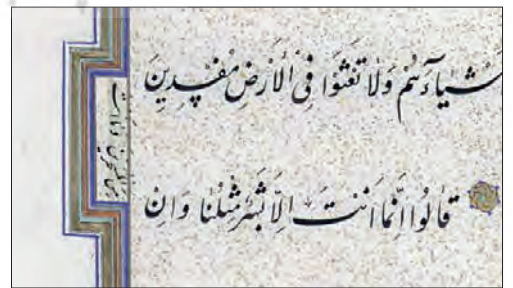 شیاءَهُم وَلَا تَعْثَوْا فِی الْاَرْضِ مُفْسِدِینَ
قَالُوا اِنَّمَا اَنْتَ اِلَّا بَشَرٌ مِثْلُنَا وَاِنْ